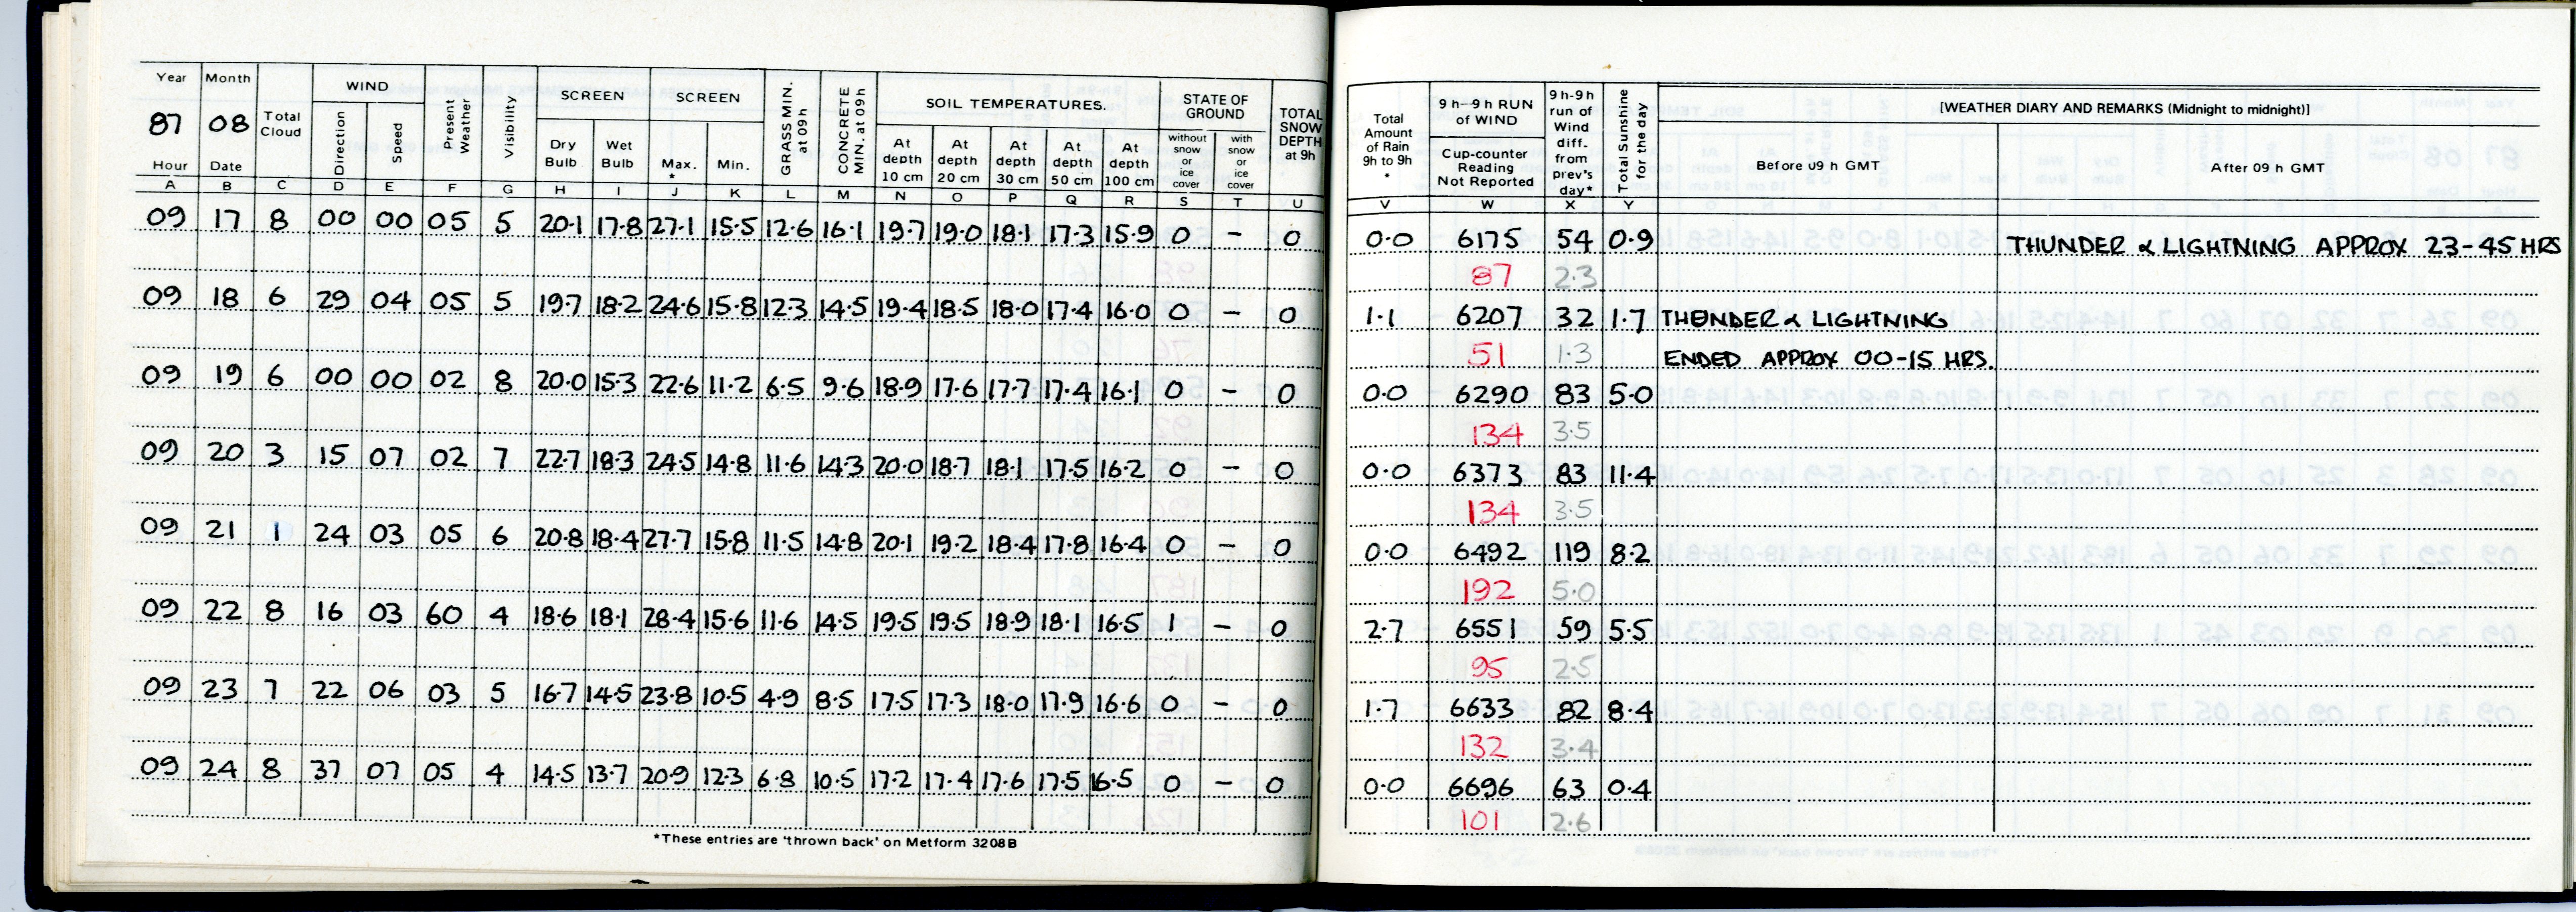 Year Month WIND SCREEN SCREEN GRASS MIN. at 09h CONCRETE MIN. at 09h SOIL TEMPERATURES. STATE OF GROUND TOTAL SNOW DEPTH at 9h
87 08 Total Cloud Direction Speed Present Weather Visibility Dry Bulb Wet Bulb Max. * Min. At depth 10 cm At depth 20 cm At depth 30 cm At depth 50 cm At depth 100 cm without snow or ice cover with snow or ice cover
Hour Date
A B C D E F G H I J K L M N O P Q R S T U
09 17 8 00 00 05 5 20.1 17.8 27.1 15.5 12.6 16.1 19.7 19.0 18.1 17.3 15.9 0 - 0
09 18 6 29 04 05 5 19.7 18.2 24.6 15.8 12.3 14.5 19.4 18.5 18.0 17.4 16.0 0 - 0
09 19 6 00 00 02 8 20.0 15.3 22.6 11.2 6.5 9.6 18.9 17.6 17.7 17.4 16.1 0 - 0
09 20 3 15 07 02 7 22.7 18.3 24.5 14.8 11.6 14.3 20.0 18.7 18.1 17.5 16.2 0 - 0
09 21 1 24 03 05 6 20.8 18.4 27.7 15.8 11.5 14.8 20.1 19.2 18.4 17.8 16.4 0 - 0
09 22 8 16 03 60 4 18.6 18.1 28.4 15.6 11.6 14.5 19.5 19.5 18.9 18.1 16.5 1 - 0
09 23 7 22 06 03 5 16.7 14.5 23.8 10.5 4.9 8.5 17.5 17.3 18.0 17.9 16.6 0 - 0
09 24 8 37 07 05 4 14.5 13.7 20.9 12.3 6.8 10.5 17.2 17.4 17.6 17.5 16.5 0 - 0
*These entries are 'thrown back' on Metform 3208B
Total Amount of Rain 9h to 9h * 9h-9h RUN of WIND 9h-9h run of Wind diff. from prev's day* Total Sunshine for the day [WEATHER DIARY AND REMARKS (Midnight to midnight)]
Cup-counter Reading Not Reported Before 09 h GMT After 09 h GMT
V W X Y
0.0 6175 54 0.9 THUNDER & LIGHTNING APPROX 23-45 HRS
87 2.3
1.1 6207 32 1.7 THUNDER & LIGHTNING
51 1.3 ENDED APPROX 00-15 HRS.
0.0 6290 83 5.0
134 3.5
0.0 6373 83 11.4
134 3.5
0.0 6492 119 8.2
192 5.0
2.7 6551 59 5.5
95 2.5
1.7 6633 82 8.4
132 3.4
0.0 6696 63 0.4
101 2.6